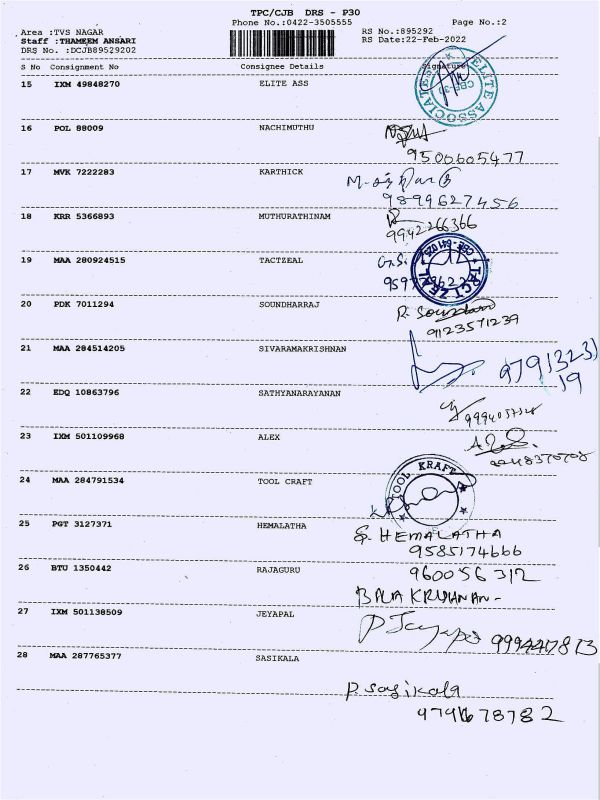 TPC/CJB DRS - P30
Phone No.:0422-3505555 Page No.:2
Area :TVS NAGAR RS No.:895292
Staff :THAMEEM ANSARI RS Date:22-Feb-2022
DRS No. :DCJB89529202
S No Consignment No Consignee Details Signature
15 IXM 49848270 ELITE ASS
ELITE ASSOCIATES
CBE-30
16 POL 88009 NACHIMUTHU
9500605477
17 MVK 7222283 KARTHICK
9899627456
18 KRR 5366893 MUTHURATHINAM
9942266366
19 MAA 280924515 TACTZEAL
TACT ZEAL
20 PDK 7011294 SOUNDHARRAJ
9123571239
21 MAA 284514205 SIVARAMAKRISHNAN
22 EDQ 10863796 SATHYANARAYANAN
23 IXM 501109968 ALEX
24 MAA 284791534 TOOL CRAFT
TOOL KRAFT
25 PGT 3127371 HEMALATHA
S. HEMALATHA
9585174666
26 BTU 1350442 RAJAGURU
960056312
27 IXM 501138509 JEYAPAL
28 MAA 287765377 SASIKALA
P. Sasikala